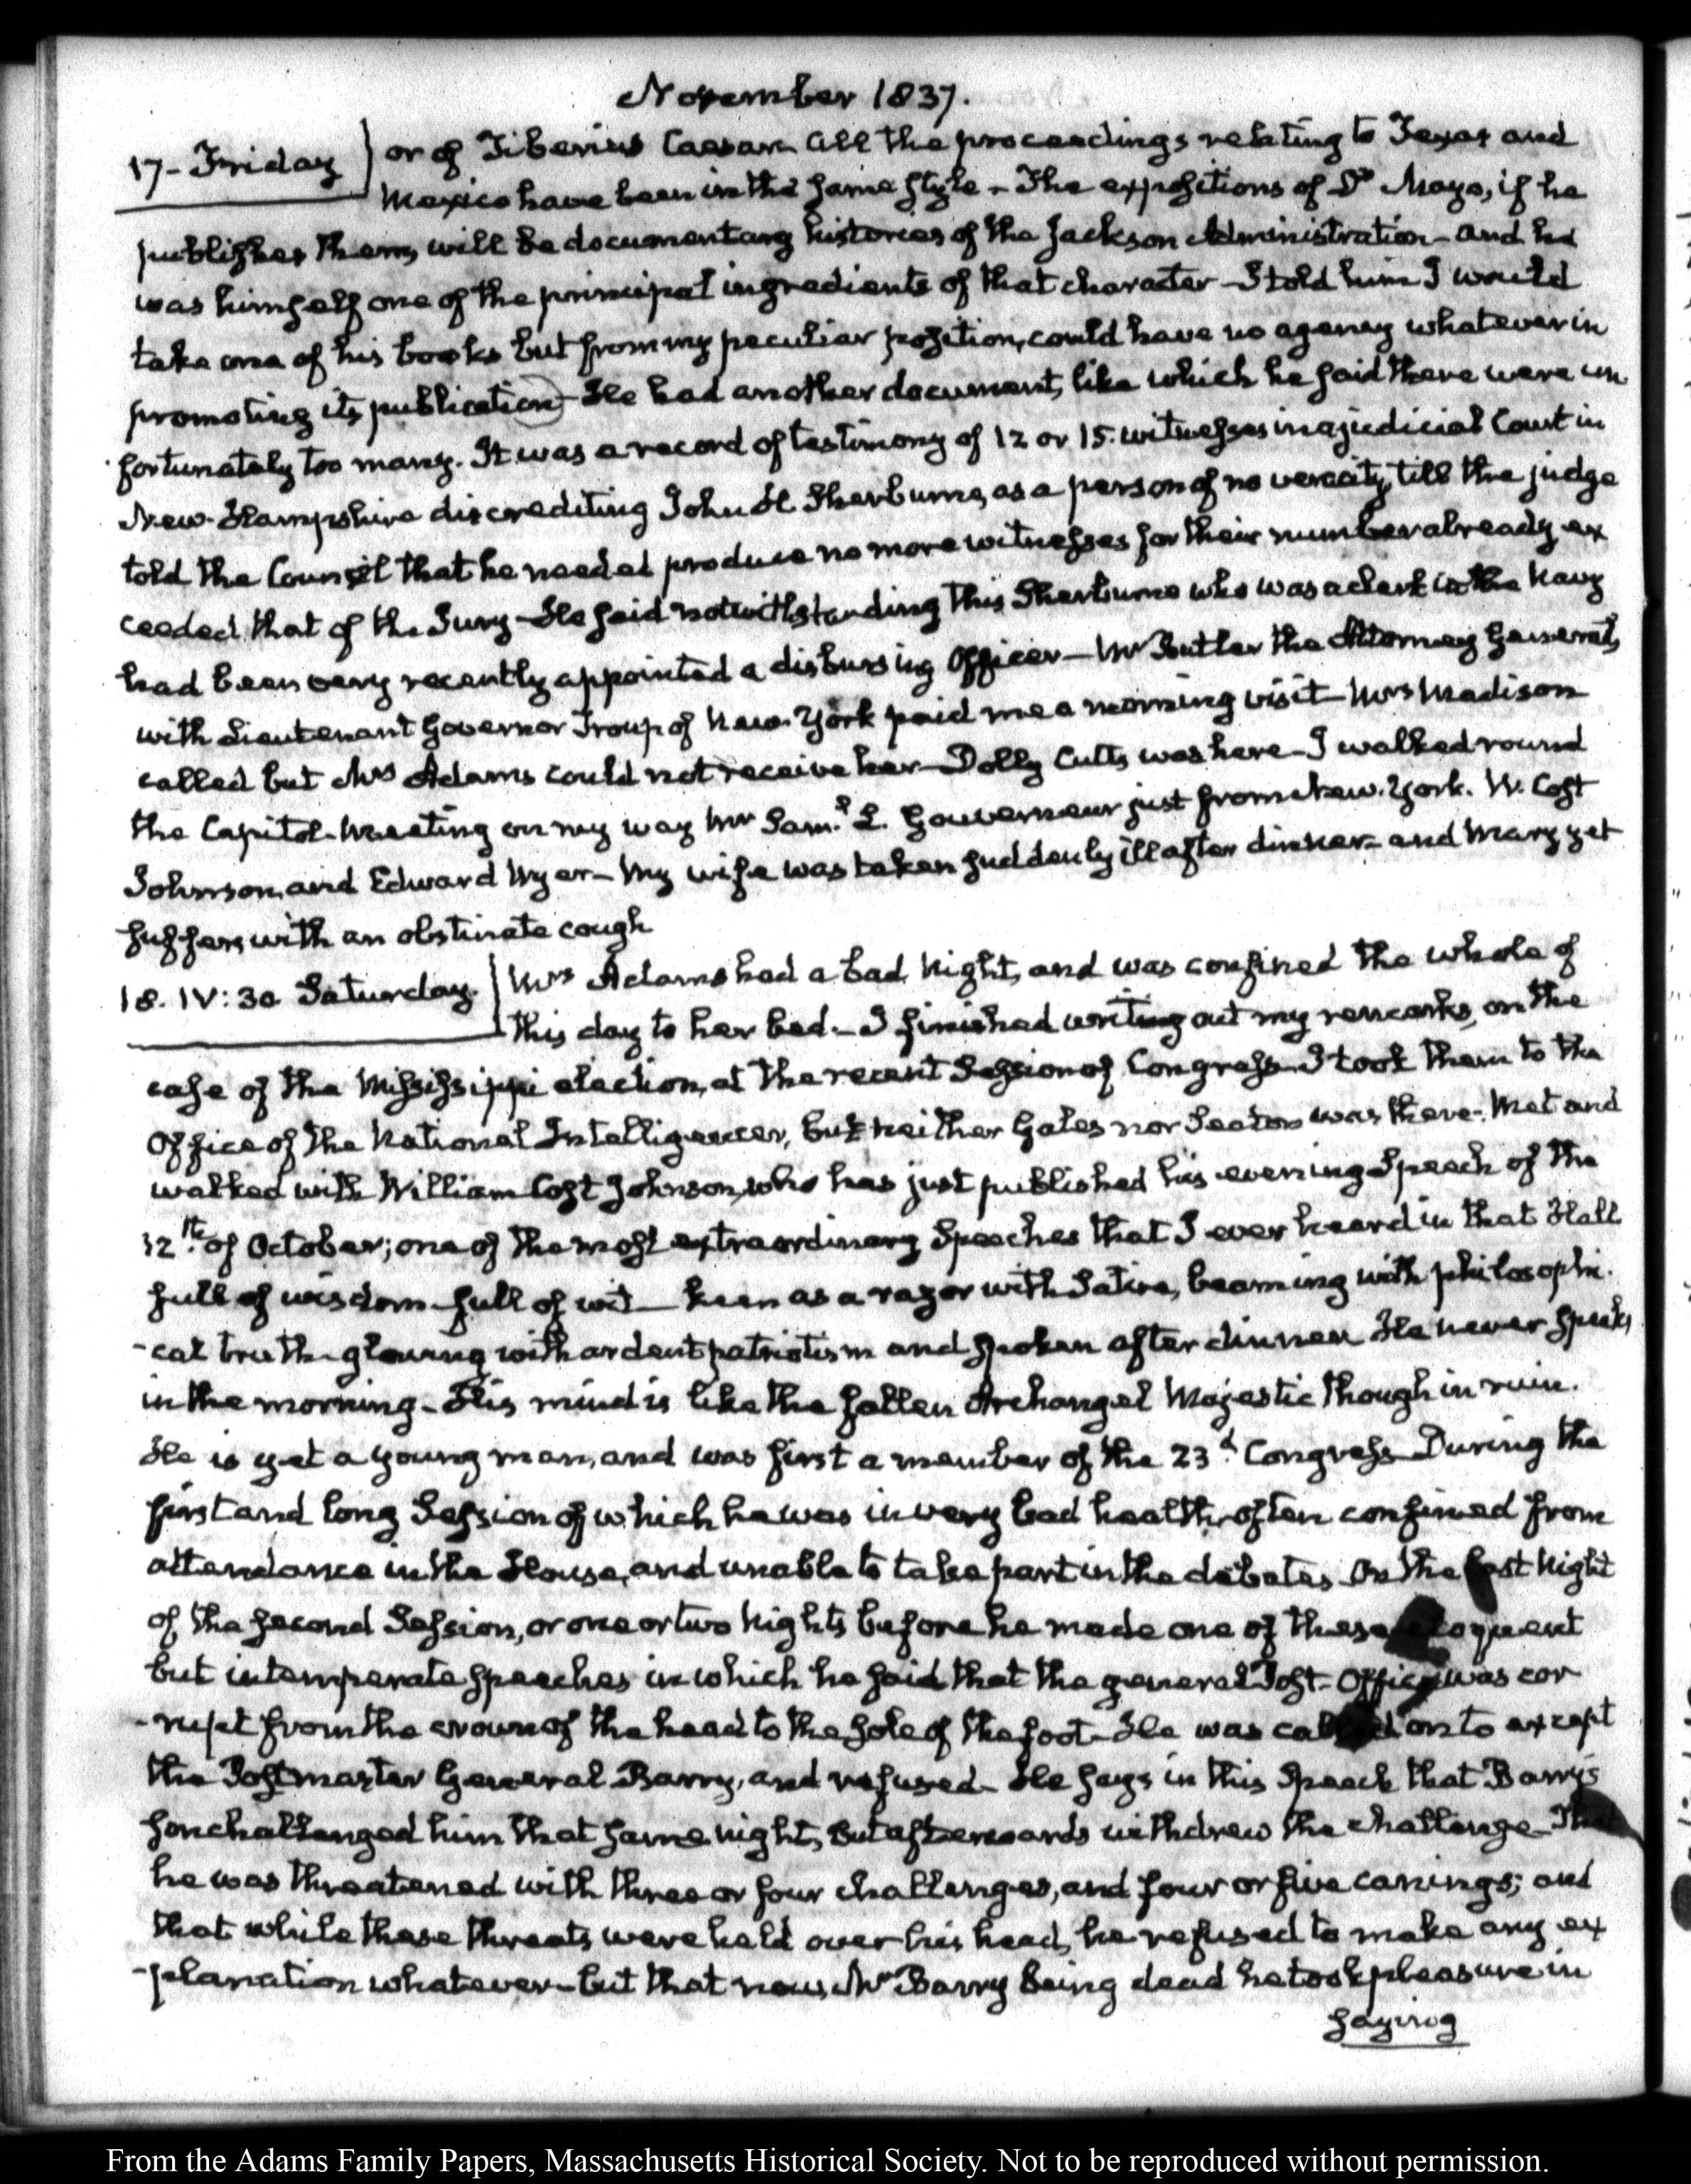 November 1837.
17- Friday
or of Tiberius Caesar. All the proceedings relating to Texas and
Mexico have been in the same style - The expositions of Dr Mayo, if he
publishes them, will be documentary histories of the Jackson Administration - and he
was himself one of the principal ingredients of that character - I told him I would
take one of his books but from my peculiar position, could have no agency whatever in
promoting its publication - He had another document, like which he said there were un
fortunately too many. It was a record of testimony of 12 or 15. witnesses in a judicial Court in
New-Hampshire discrediting John H Sherburne, as a person of no veracity, till the judge
told the Counsel that he needed produce no more witnesses for their number already ex
ceeded that of the Jury - He said notwithstanding this Sherburne who was a clerk in the Navy
had been very recently appointed a disbursing Officer - Mr Butler the Attorney General,
with Lieutenant Governor Troup of New-York paid me a morning visit - Mrs Madison
called but Mrs Adams could not receive her - Dolly Cutts was here - I walked round
the Capitol - Meeting on my way Mr Saml L. Gouverneur just from New-York. W. Cost
Johnson, and Edward Wyer - My wife was taken suddenly ill after dinner - and Mary yet
suffers with an obstinate cough
18. IV:30 Saturday.
Mrs Adams had a bad Night, and was confined the whole of
this day to her bed. - I finished writing out my remarks, on the
case of the Mississippi election, at the recent Session of Congress - I took them to the
Office of the National Intelligencer, but neither Gales nor Seaton was there - Met and
walked with William Cost Johnson, who has just published his evening Speech of the
12th. of October; one of the most extraordinary Speeches that I ever heard in that Hall
full of wisdom - full of wit - keen as a razor with Satire, beaming with philosophi-
-cal truth - glowing with ardent patriotism and spoken after dinner He never speaks
in the morning - His mind is like the fallen Archangel Majestic though in ruin.
He is yet a young man, and was first a member of the 23d. Congress During the
first and long Session of which he was in very bad health, often confined from
attendance in the House, and unable to take part in the debates On the last Night
of the second Session, or one or two Nights before he made one of these eloquent
but intemperate speeches in which he said that the general Post-Office was cor
-rupt from the crown of the head to the sole of the foot - He was called on to except
the Postmaster General Barry, and refused - He says in this Speech that Barry's
son challenged him that same night, but afterwards withdrew the challenge - That
he was threatened with three or four challenges, and four or five canings; and
that while these threats were held over his head, he refused to make any ex
-planation whatever - but that now, Mr Barry being dead he took pleasure in
saying
From the Adams Family Papers, Massachusetts Historical Society. Not to be reproduced without permission.